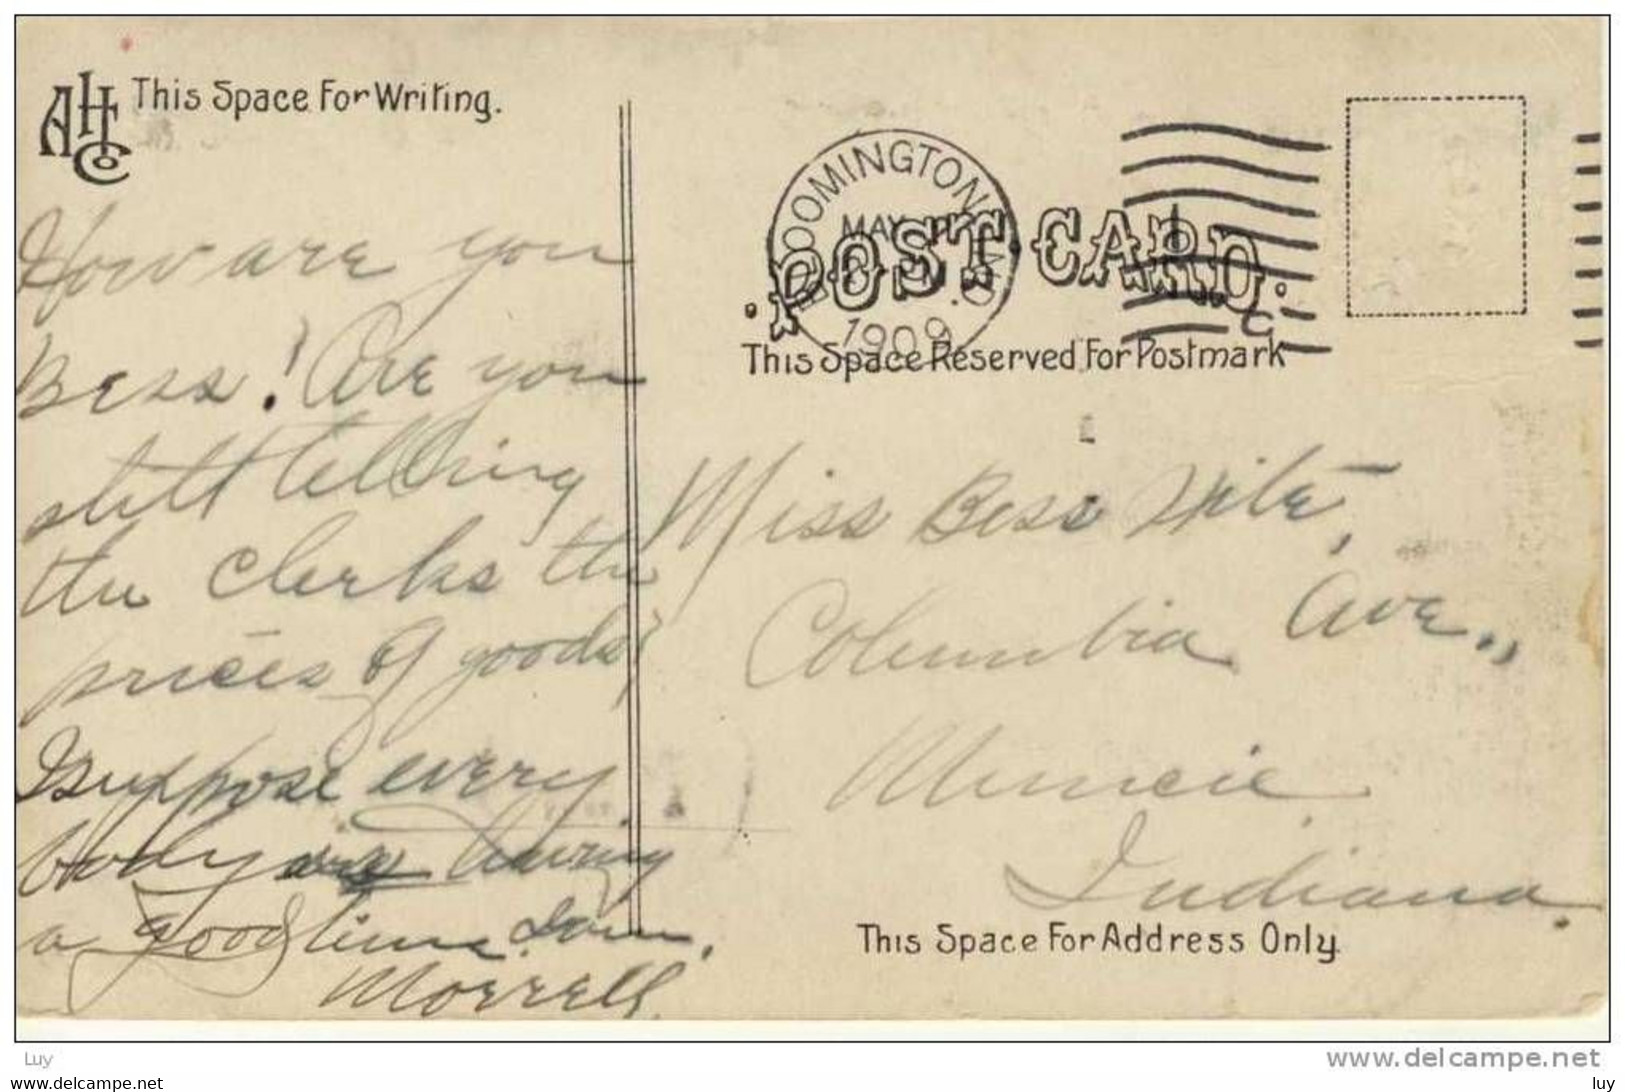 AHCo
This Space For Writing.
How are you
Bess! Are you
still telling
the clerks the
prices of goods?
I suppose every
body is having
a good time. I am.
Morrell
BLOOMINGTON
MAY
1909
POST CARD.
This Space Reserved For Postmark
C
Miss Bess Hite,
Columbia Ave.,
Muncie
Indiana.
This Space For Address Only.
Luy
www.delcampe.net
www.delcampe.net
luy